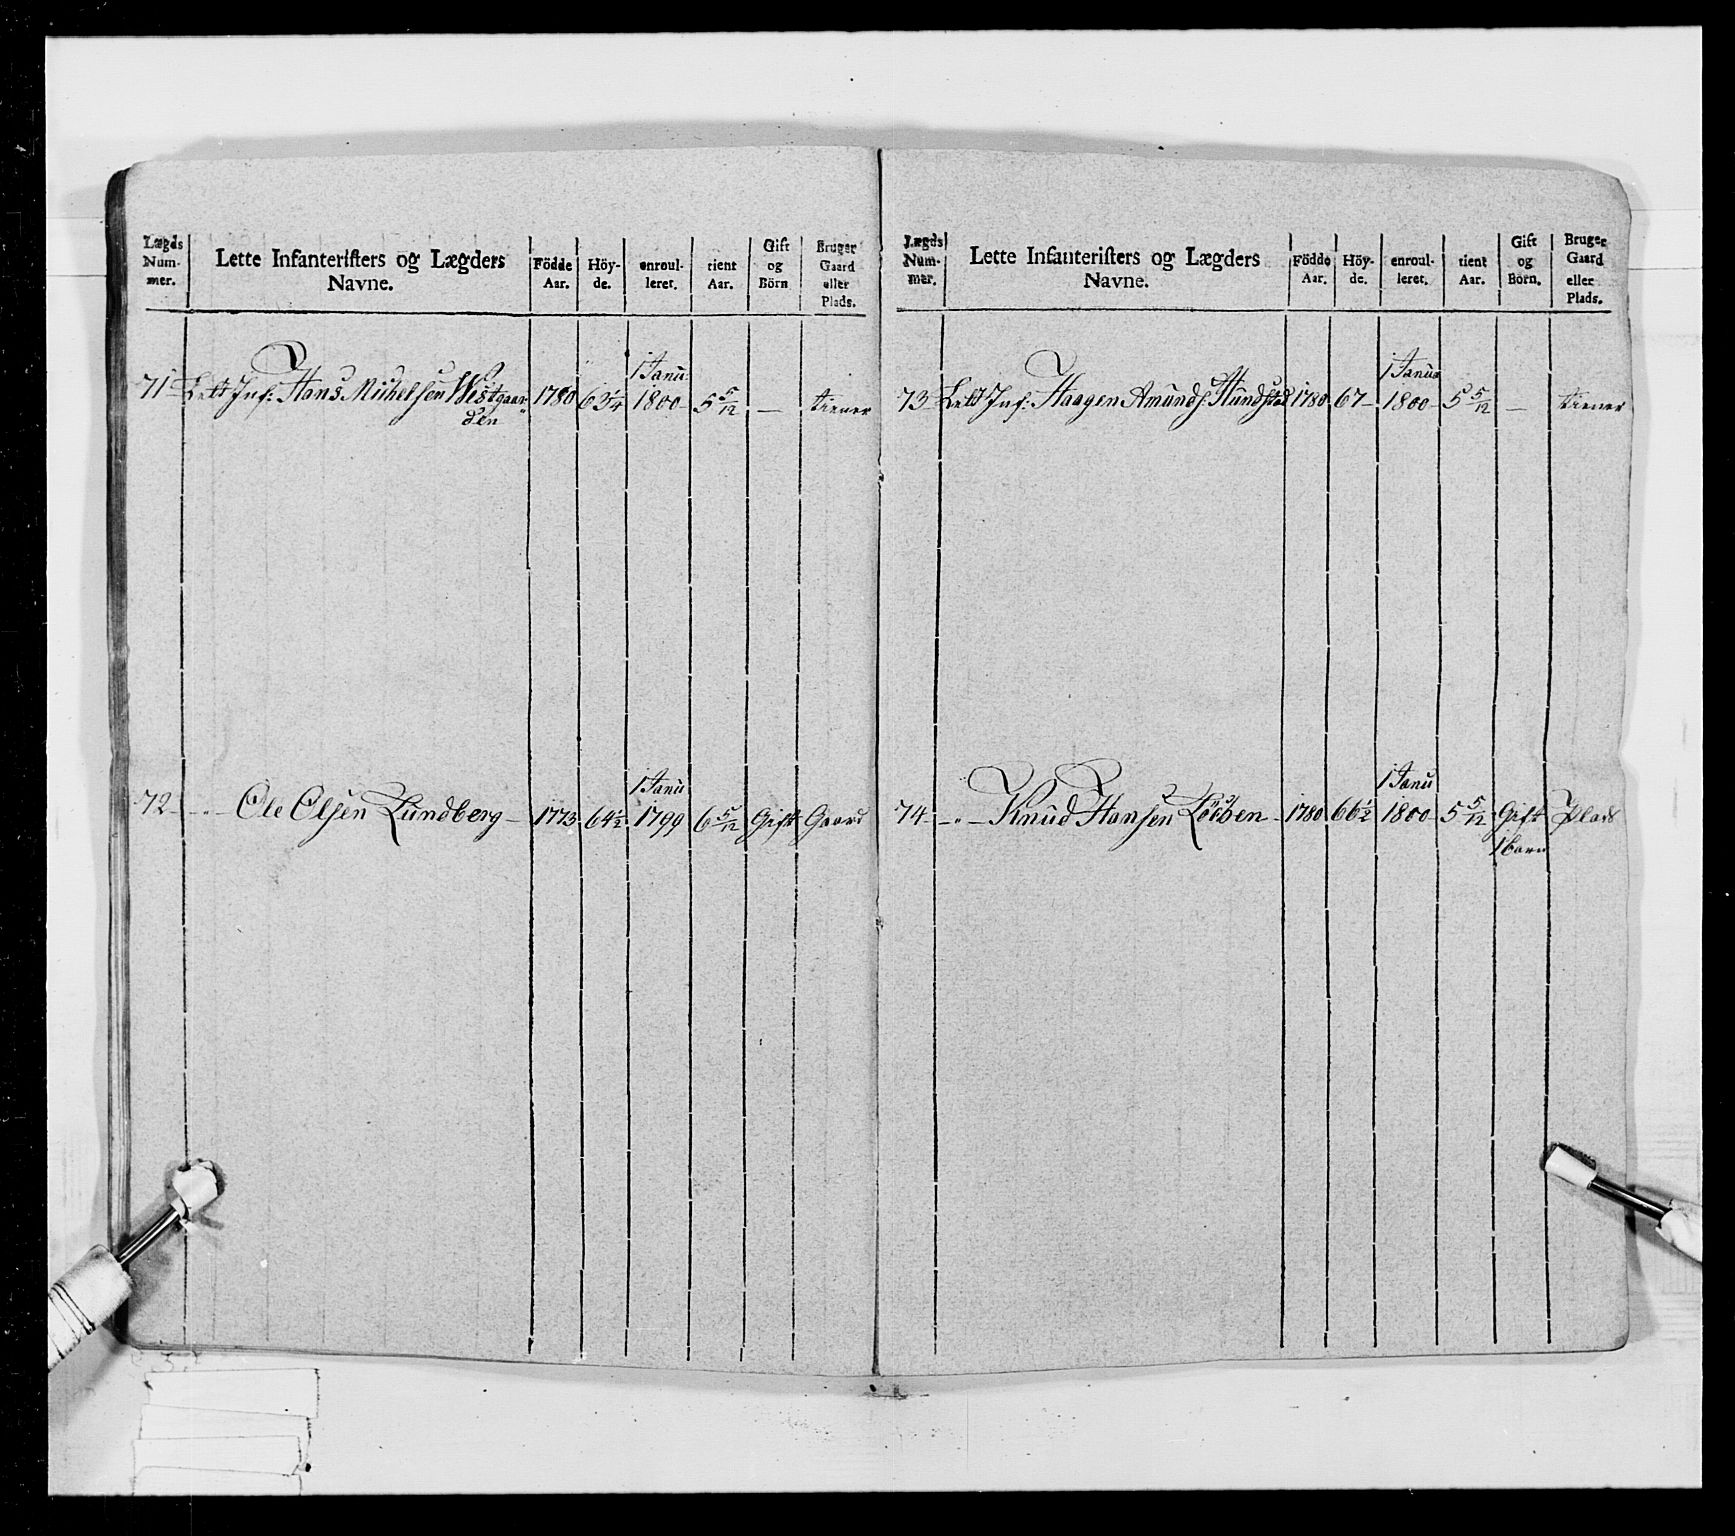 Lægds Num-mer. Lette Infanteristers og Lægders Navne. Födde Aar. Höy-de. enroul-leret. tient Aar. Gift og Börn Bruger Gaard eller Plads.
1 Janu:
71 Lett Inf: Hans Michelsen Westgaar 1780 63¼ 1800 5 5/12 — tiener
den
1 Janu
72 - „ - Ole Olsen Lundberg 1773 64½ 1799 6 5/12 Gift Gaard
Lægds Num-mer. Lette Infanteristers og Lægders Navne. Födde Aar. Höy-de. enroul-leret. tient Aar. Gift og Börn. Bruger Gaard eller Plads.
1 Janua
73 Lett Inf: Haagen Amunds. Hundstad 1780 67 1800 5 5/12 — tiener
1 Janu
74 - „ - Knud Hansen 1780 66½ 1800 5 5/12 Gift Plads
1 barn